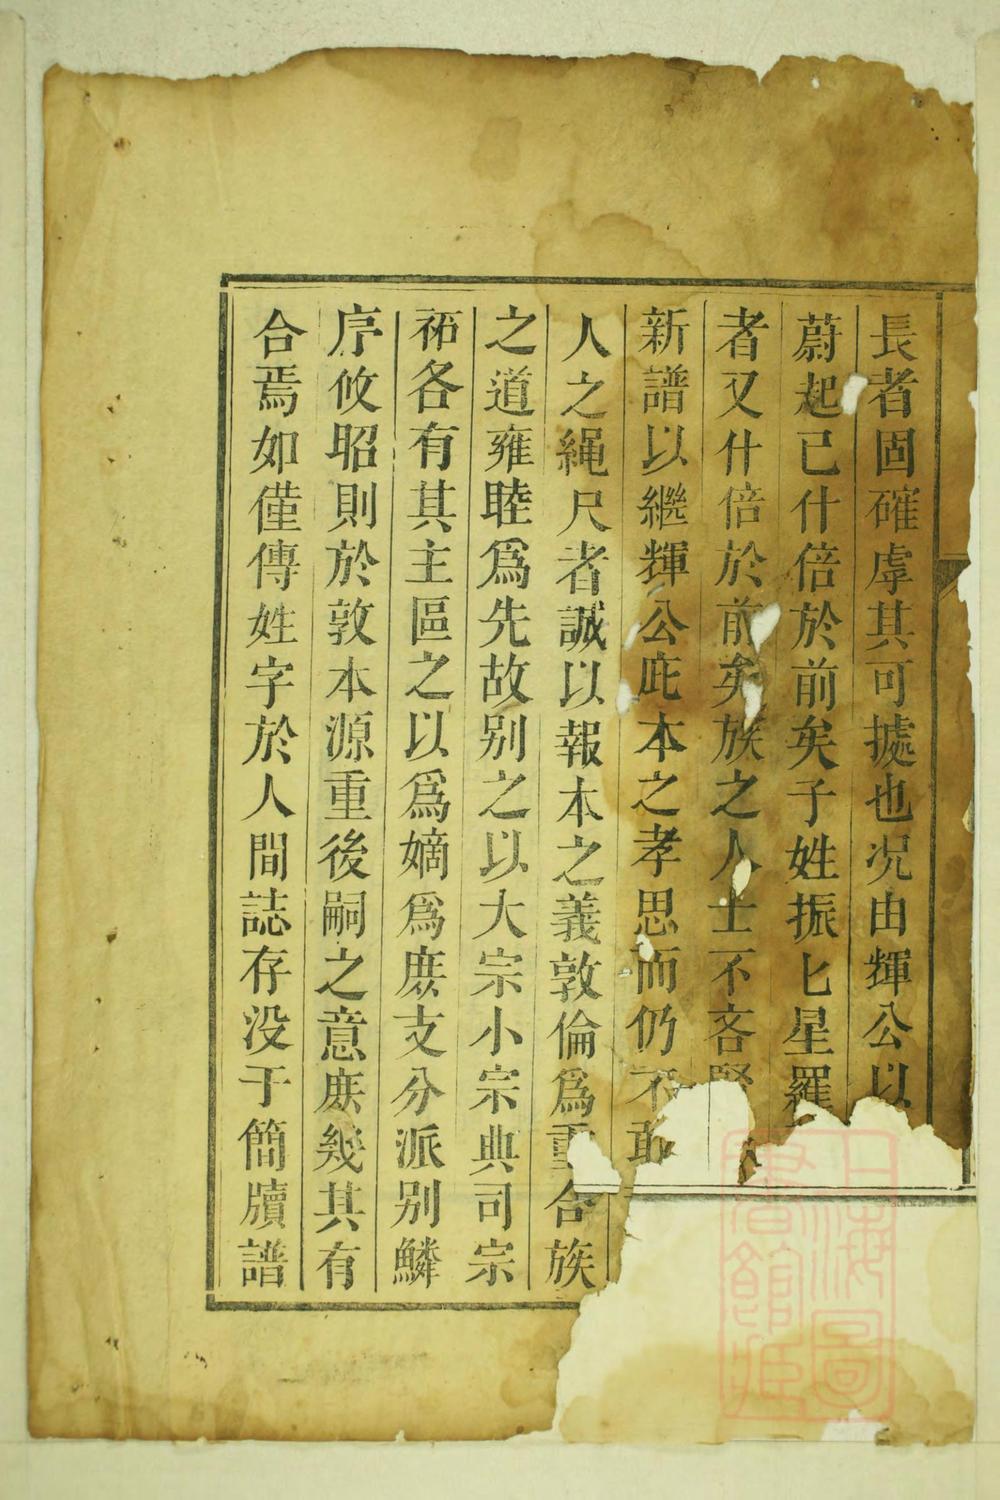 長者固確虖其可㨿也况由輝公以
蔚起已什倍於前矣子姓振匕星羅
者又什倍於前矣族之人士不吝
新譜以繼輝公庇本之孝思而仍不敢
人之繩尺者誠以報本之義敦倫爲重合族
之道雍睦爲先故别之以大宗小宗典司宗
祏各有其主區之以爲嫡爲庶支分派别鱗
序攸昭則於敦本源重後嗣之意庶幾其有
合焉如僅傳姓字於人間誌存没于簡牘譜
上海圖書館藏